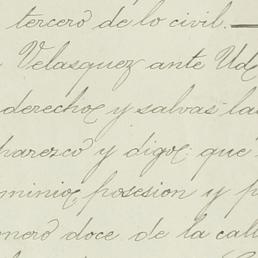 tercero de lo civil.
Velasquez ante Ud
derechos y salvas la
parezco y digo: que
minio, posesion y p
mero doce de la call